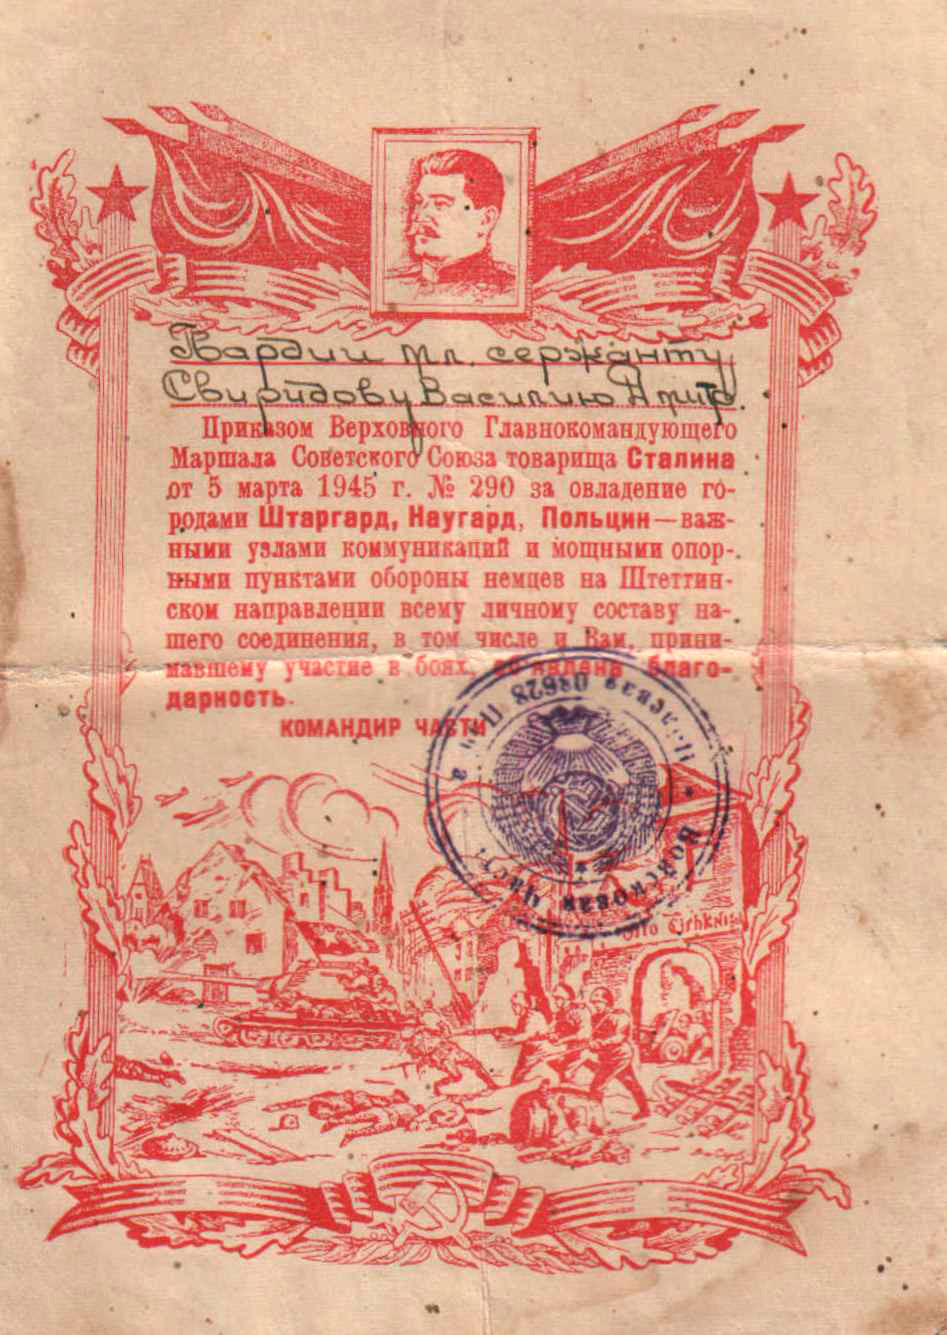 Гвардии мл. сержанту
Свиридову Василию Дмитр.
Приказом Верховного Главнокомандующего
Маршала Советского Союза товарища Сталина
от 5 марта 1945 г. № 290 за овладение го-
родами Штаргард, Наугард, Польцин — важ-
ными узлами коммуникаций и мощными опор-
ными пунктами обороны немцев на Штеттин-
ском направлении всему личному составу на-
шего соединения, в том числе и Вам, прини-
мавшему участие в боях, объявлена благо-
дарность.
КОМАНДИР ЧАСТИ
Войсковая часть
Полевая
Otto